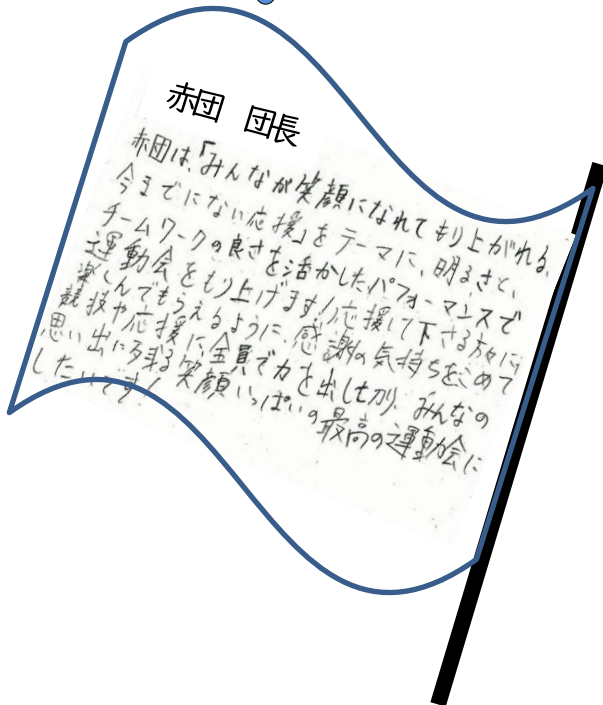 赤団 団長
赤団は、「みんなが笑顔になれてもり上がれる、
今までにない応援」をテーマに、明るさと、
チームワークの良さを活かしたパフォーマンスで
運動会をもり上げます!応援して下さる方々に
楽しんでもらえるように、感謝の気持ちをこめて
競技や応援に全員で力を出し切り、みんなの
思い出に残る笑顔いっぱいの最高の運動会に
したいです!